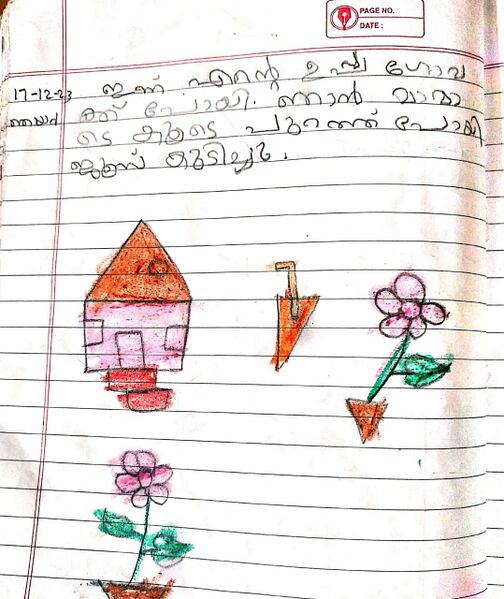 PAGE NO.
DATE :
17-12-23 ഇന്ന് എന്റെ ഉപ്പ ഗോവ
ഞായർ ക്ക് പോയി. ഞാൻ മാമാ
ടെ കൂടെ പുറത്ത് പോയി
ജൂസ് കുടിച്ചു.